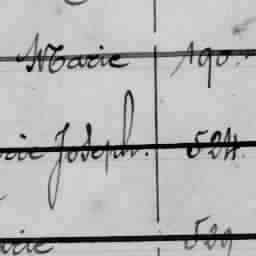 Marie 190.
rie Joseph. 524.
arie 529